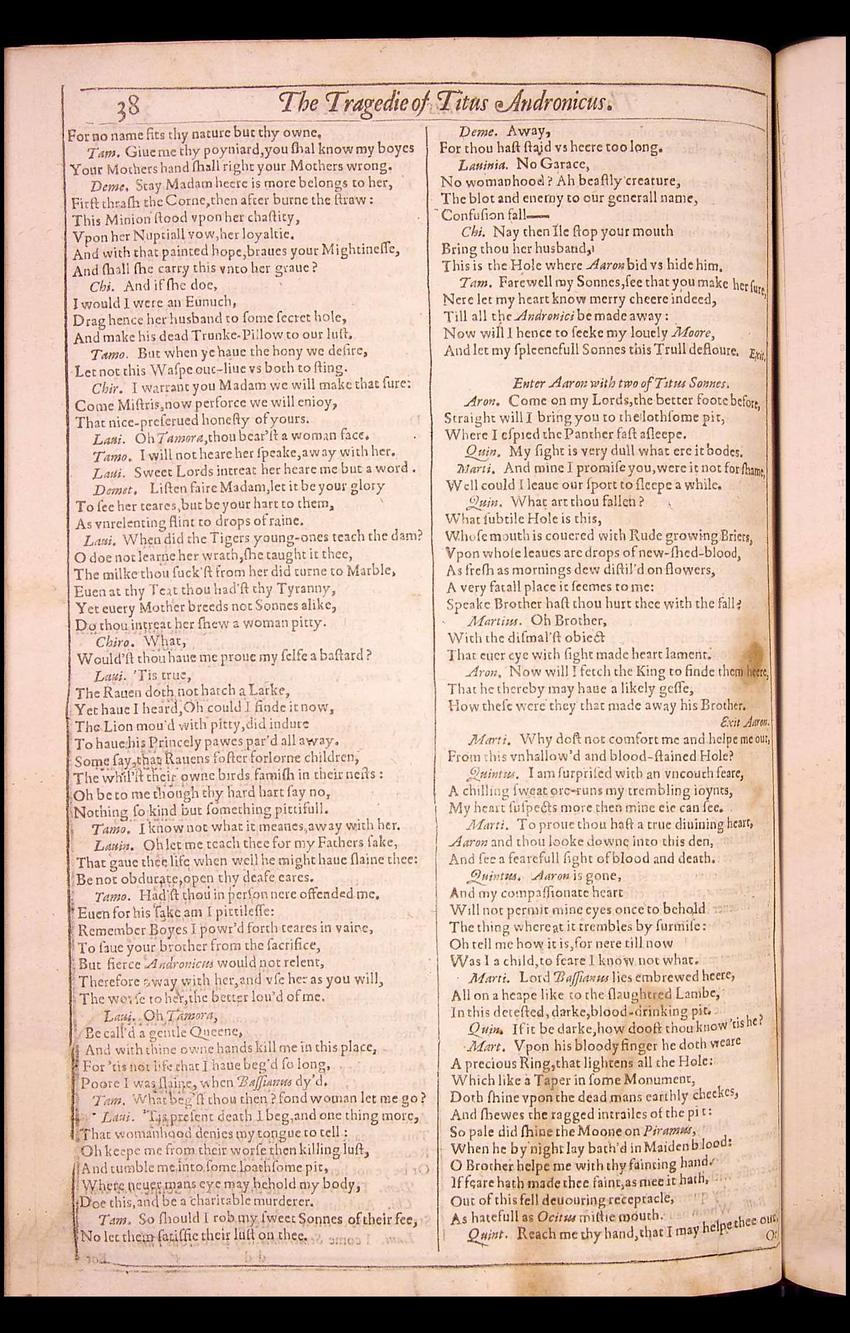 38
The Tragedie of Titus Andronicus.
For no name fits thy nature but thy owne.
Tam. Giue me thy poyniard,you ſhal know my boyes
Your Mothers hand ſhall right your Mothers wrong.
Deme. Stay Madam heere is more belongs to her,
Firſt thraſh the Corne,then after burne the ſtraw:
This Minion ſtood vpon her chaſtity,
Vpon her Nuptiall vow,her loyaltie.
And with that painted hope,braues your Mightineſſe,
And ſhall ſhe carry this vnto her graue?
Chi. And if ſhe doe,
I would I were an Eunuch,
Drag hence her husband to ſome ſecret hole,
And make his dead Trunke-Pillow to our luſt.
Tamo. But when ye haue the hony we deſire,
Let not this Waſpe out-liue vs both to ſting.
Chir. I warrant you Madam we will make that ſure:
Come Miſtris,now perforce we will enioy,
That nice-preſerued honeſty of yours.
Laui. Oh Tamora,thou bear'ſt a woman face.
Tamo. I will not heare her ſpeake,away with her.
Laui. Sweet Lords intreat her heare me but a word.
Demet. Liſten faire Madam,let it be your glory
To ſee her teares,but be your hart to them,
As vnrelenting flint to drops of raine.
Laui. When did the Tigers young-ones teach the dam?
O doe not learne her wrath,ſhe taught it thee,
The milke thou ſuck'ſt from her did turne to Marble,
Euen at thy Teat thou had'ſt thy Tyranny,
Yet euery Mother breeds not Sonnes alike,
Do thou intreat her ſhew a woman pitty.
Chiro. What,
Would'ſt thou haue me proue my ſelfe a baſtard?
Laui. 'Tis true,
The Rauen doth not hatch a Larke,
Yet haue I heard,Oh could I finde it now,
The Lion mou'd with pitty,did indure
To haue his Princely pawes par'd all away.
Some ſay,that Rauens foſter forlorne children,
The whil'ſt their owne birds famiſh in their neſts:
Oh be to me though thy hard hart ſay no,
Nothing ſo kind but ſomething pittifull.
Tamo. I know not what it meanes,away with her.
Lauin. Oh let me teach thee for my Fathers ſake,
That gaue thee life when well he might haue ſlaine thee:
Be not obdurate,open thy deafe eares.
Tamo. Had'ſt thou in perſon nere offended me,
Euen for his ſake am I pittileſſe:
Remember Boyes I powr'd forth teares in vaine,
To ſaue your brother from the ſacrifice,
But fierce Andronicus would not relent,
Therefore away with her,and vſe her as you will,
The worſe to her,the better lou'd of me.
Laui. Oh Tamora,
Be call'd a gentle Queene,
And with thine owne hands kill me in this place,
For 'tis not life that I haue beg'd ſo long,
Poore I was ſlaine, when Baſſianus dy'd.
Tam. What beg'ſt thou then? fond woman let me go?
Laui. 'Tis preſent death I beg,and one thing more,
That womanhood denies my tongue to tell:
Oh keepe me from their worſe then killing luſt,
And tumble me into ſome loathſome pit,
Where neuer mans eye may behold my body,
Doe this,and be a charitable murderer.
Tam. So ſhould I rob my ſweet Sonnes of their fee,
No let them ſatiſfie their luſt on thee.
Deme. Away,
For thou haſt ſtaid vs heere too long.
Lauinia. No Garace,
No womanhood? Ah beaſtly creature,
The blot and enemy to our generall name,
Confuſion fall——
Chi. Nay then Ile ſtop your mouth
Bring thou her husband,
This is the Hole where Aaron bid vs hide him.
Tam. Farewell my Sonnes,ſee that you make her ſure,
Nere let my heart know merry cheere indeed,
Till all the Andronici be made away:
Now will I hence to ſeeke my louely Moore,
And let my ſpleenefull Sonnes this Trull defloure. Exit.
Enter Aaron with two of Titus Sonnes.
Aron. Come on my Lords,the better foote before,
Straight will I bring you to the lothſome pit,
Where I eſpied the Panther faſt aſleepe.
Quin. My ſight is very dull what ere it bodes.
Marti. And mine I promiſe you,were it not for ſhame,
Well could I leaue our ſport to ſleepe a while.
Quin. What art thou fallen?
What ſubtile Hole is this,
Whoſe mouth is couered with Rude growing Briers,
Vpon whoſe leaues are drops of new-ſhed-blood,
As freſh as mornings dew diſtil'd on flowers,
A very fatall place it ſeemes to me:
Speake Brother haſt thou hurt thee with the fall?
Martius. Oh Brother,
With the diſmal'ſt obiect
That euer eye with ſight made heart lament.
Aron. Now will I fetch the King to finde them heere,
That he thereby may haue a likely geſſe,
How theſe were they that made away his Brother.
Exit Aaron.
Marti. Why doſt not comfort me and helpe me out,
From this vnhallow'd and blood-ſtained Hole?
Quintus. I am ſurpriſed with an vncouth feare,
A chilling ſweat ore-runs my trembling ioynts,
My heart ſuſpects more then mine eie can ſee.
Marti. To proue thou haſt a true diuining heart,
Aaron and thou looke downe into this den,
And ſee a fearefull ſight of blood and death.
Quintus. Aaron is gone,
And my compaſſionate heart
Will not permit mine eyes once to behold
The thing whereat it trembles by ſurmiſe:
Oh tell me how it is,for nere till now
Was I a child,to feare I know not what.
Marti. Lord Baſſianus lies embrewed heere,
All on a heape like to the ſlaughtred Lambe,
In this deteſted,darke,blood-drinking pit.
Quin. If it be darke,how dooſt thou know 'tis he?
Mart. Vpon his bloody finger he doth weare
A precious Ring,that lightens all the Hole:
Which like a Taper in ſome Monument,
Doth ſhine vpon the dead mans earthly cheekes,
And ſhewes the ragged intrailes of the pit:
So pale did ſhine the Moone on Piramus,
When he by night lay bath'd in Maiden blood:
O Brother helpe me with thy fainting hand.
If feare hath made thee faint,as mee it hath,
Out of this fell deuouring receptacle,
As hatefull as Ocitus miſtie mouth.
Quint. Reach me thy hand,that I may helpe thee out,
Or